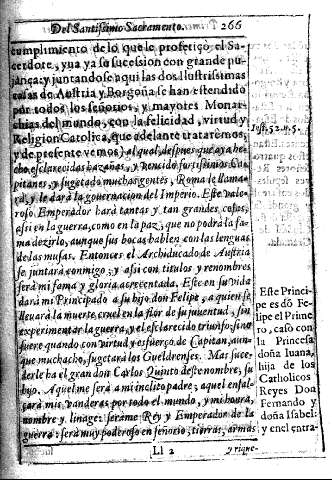 Del Santissimo Sacramento. 266
cumplimiento de lo que le profetiçò el Sa-
cerdote, yua ya su sucesion con grande pu-
jança: y juntandose aqui las dos Ilustrissimas
casas de Austria y Borgoña se han estendido
por todos los señorios, y mayores Monar-
chias del mundo, con la felicidad, virtud y
Religion Catolica, que adelante trataremos,
y de presente vemos) al qual, despues que aya he-
cho esclarecidas hazañas, y vencido fortissimos Ca-
pitanes, y sugetado muchas gentes, Roma le llama-
rà, y le darà la gouernacion del Imperio. Este vale-
roso Emperador harà tantas y tan grandes cosas,
assi en la guerra, como en la paz, que no podrà la fa-
ma dezirlo, aunque sus bocas hablen con las lenguas
de las musas. Entonces el Archiducado de Austria
se juntarà conmigo, y assi con titulos y renombres
serà mi fama y gloria acrecentada. Este en su vida
darà mi Principado a su hijo don Felipe, a quien se
lleuarà la muerte cruel en la flor de su juventud, sin
experimentar la guerra, y el esclarecido triunfo, si no
fuere quando con virtud y esfuerço de Capitan, aun-
que muchacho, sugetarà los Gueldrenses. Mas suce-
derle ha el gran don Carlos Quinto deste nombre, su
hijo. Aquel me serà a mi inclito padre, aquel ensal-
çarà mis vanderas por todo el mundo, y mi honra,
nombre y linage: serame Rey y Emperador de la
guerra: serà muy poderoso en señorio, tierras, armas
Ll 2 y rique-
Este Princi-
pe es dõ Fe-
lipe el Prime
ro, casò con
la Princesa
doña Iuana,
hija de los
Catholicos
Reyes Don
Fernando y
doña Isabel:
y en el entra-